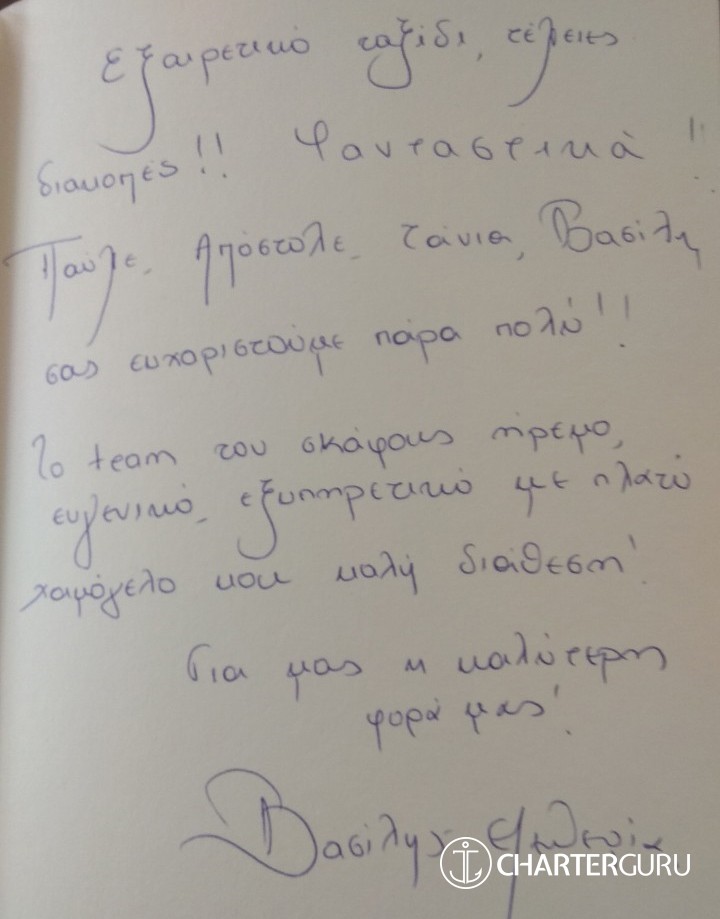 εξαιρετικό ταξίδι, τέλειες
διακοπές!! Φανταστικά!!
Παύλε, Απόστολε, Τάνια, Βασίλη
σας ευχαριστούμε πάρα πολύ!!
Το team του σκάφους ήρεμο,
ευγενικό, εξυπηρετικό με πλατύ
χαμόγελο και καλή διάθεση!
Για μας η καλύτερη
φορά μας!
Βασίλης
CHARTERGURU